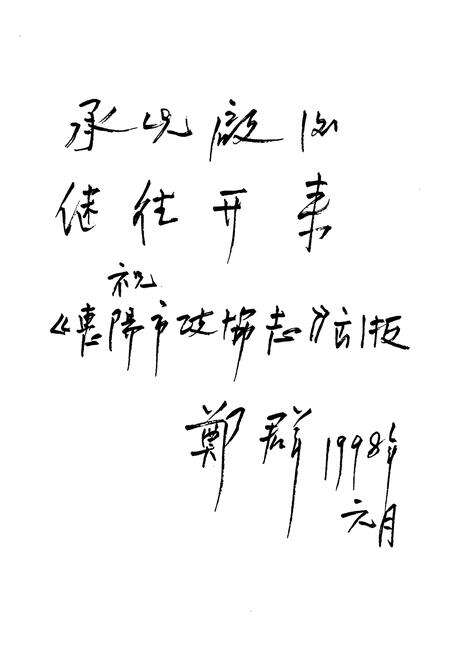 承先啟后
继往开来
祝
《惠陽市政协志》出版
鄭群 1998年
元月